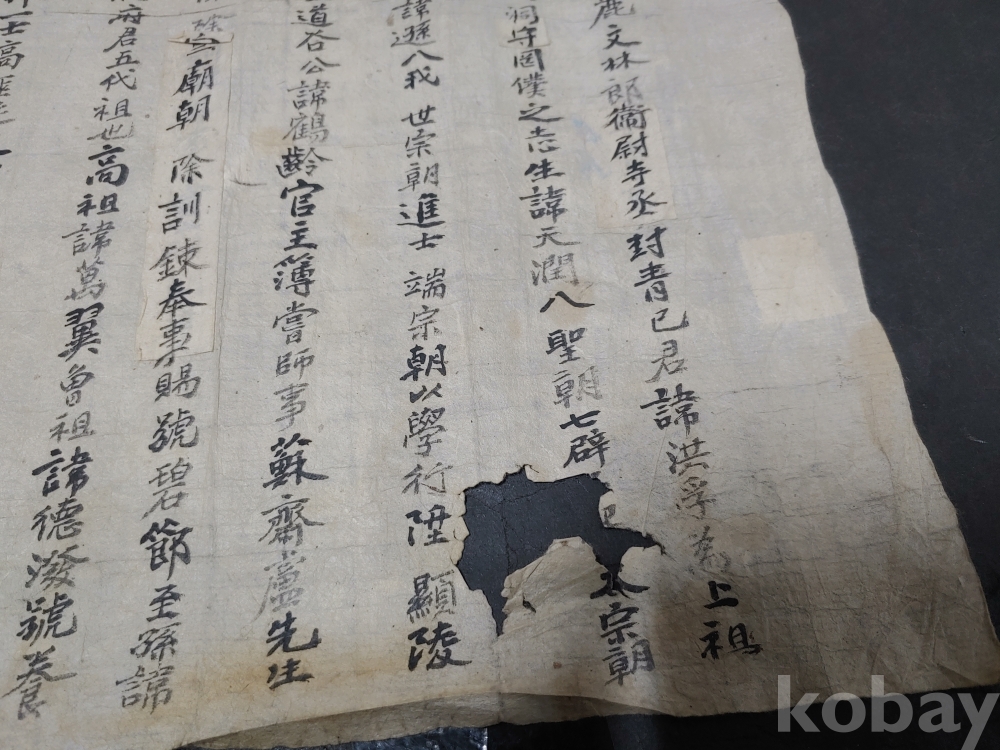 鹿文林郎衛尉寺丞封青己君諱洪孚為上祖
洞守罔僕之志生諱天潤入 聖朝七辟 太宗朝
諱遜入我 世宗朝進士 端宗朝以學行陞 顯陵
道谷公諱鶴齡官主簿嘗師事蘇齋盧先生
除 宣廟朝 除訓鍊奉事賜號碧節至孫諱
府君五代祖也高祖諱萬翼曾祖諱德潑號養
士高
kobay